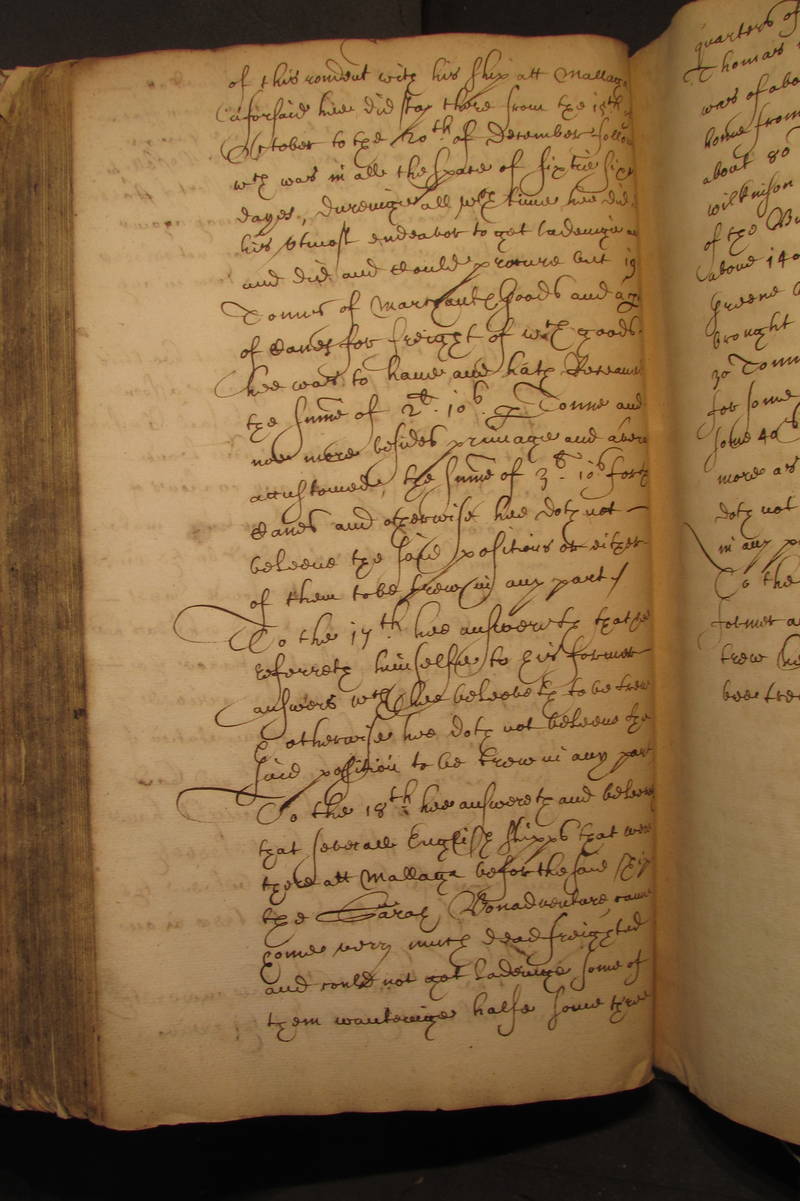 of this rondent with his ship att Mallaga
aforsaid hee did stay there from the 15th of
October to the 20th of December follow
wch was in all the space of sixtie six
dayes, dureinge all wch time hee did
his utmost endeavor to get ladeinge
and did and Could procure but 19
Tonns of Marchants Goods and
of Canes for freight of wch goods
hee was to have and hath Received
the sume of 2li. 10s. p Tonne and
noe more besides primage and avera
accustomed, the sume of 3li. 10s for the
Canes and otherwise hee doth not
beleeve the said positions or either
of them to be trew in any part /
To the 17th hee answereth that he
referreth himselfe to his former
answers wch hee beleeveth to be trew
& otherwise hee doth not beleeve the
said position to be trew in any part
To the 18th hee answereth and beleeve
that severall English shipps that were
there att Mallaga befor the said ship
the Sarah Bonadventure came
home very much dead freighted
and could not get ladeinge some of
them wanteinge halfe some three
quarters of
Thomas
was of abo
home from
about 80
wilkinson
of the
above 140
Greene
brought
30 Tonn
for some
some 40s
more as
doth not
in any p
To the
former a
trew he
bee trew